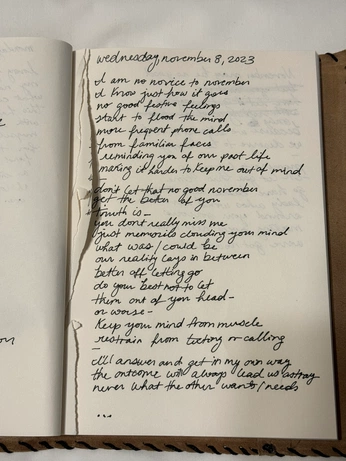 wednesday, november 8, 2023
I am no novice to november
I know just how it goes
no good festive feelings
start to flood the mind
more frequent phone calls
from familiar faces
reminding you of our past life
making it harder to keep me out of mind
don't let that no good november
get the better of you
truth is—
you don't really miss me
just memories clouding your mind
what was/could be
our reality lays in between
better off letting go
do your best not to let
them out of your head—
or worse—
keep your mind from muscle
restrain from texting or calling
I'll answer and get in my own way
the outcome will always lead us astray
never what the other wants/needs
...